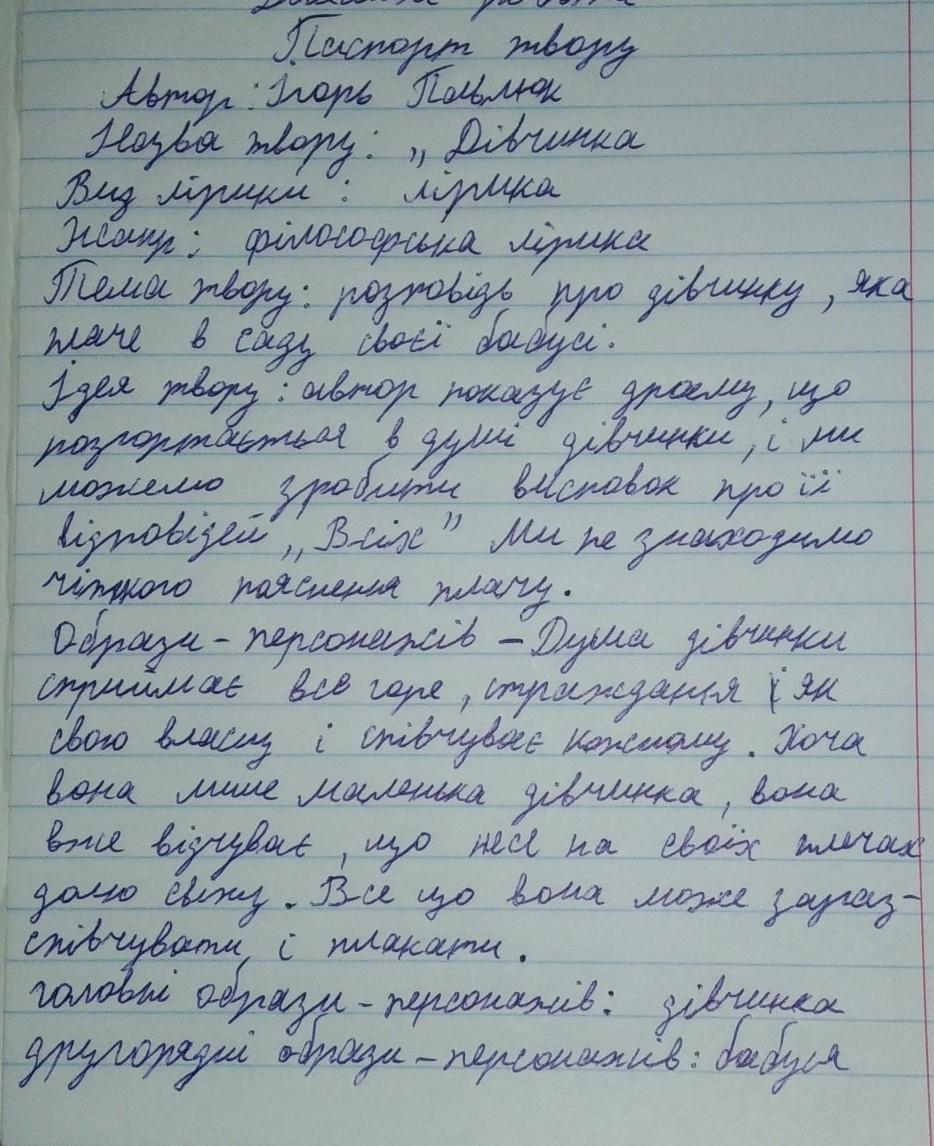 Домашня робота
Паспорт твору
Автор: Ігорь Павлюк
Назва твору: „Дівчинка
Вид лірики: лірика
Жанр: філософська лірика
Тема твору: розповідь про дівчинку, яка
плаче в саду своєї бабусі.
Ідея твору: автор показує драму, що
розгортається в душі дівчинки, і ми
можемо зробити висновок про її
відповідей „Всіх" Ми не знаходимо
чіткого пояснення плачу.
Образи - персонажів - Душа дівчинки
сприймає все горе, страждання і як
свою власну і співчуває кожному. Хоча
вона лише маленька дівчинка, вона
вже відчуває, що несе на своїх плечах
долю світу. Все що вона може зараз-
співчувати і плакати.
головні образи - персонажів: дівчинка
другорядні образи - персонажів: бабуся